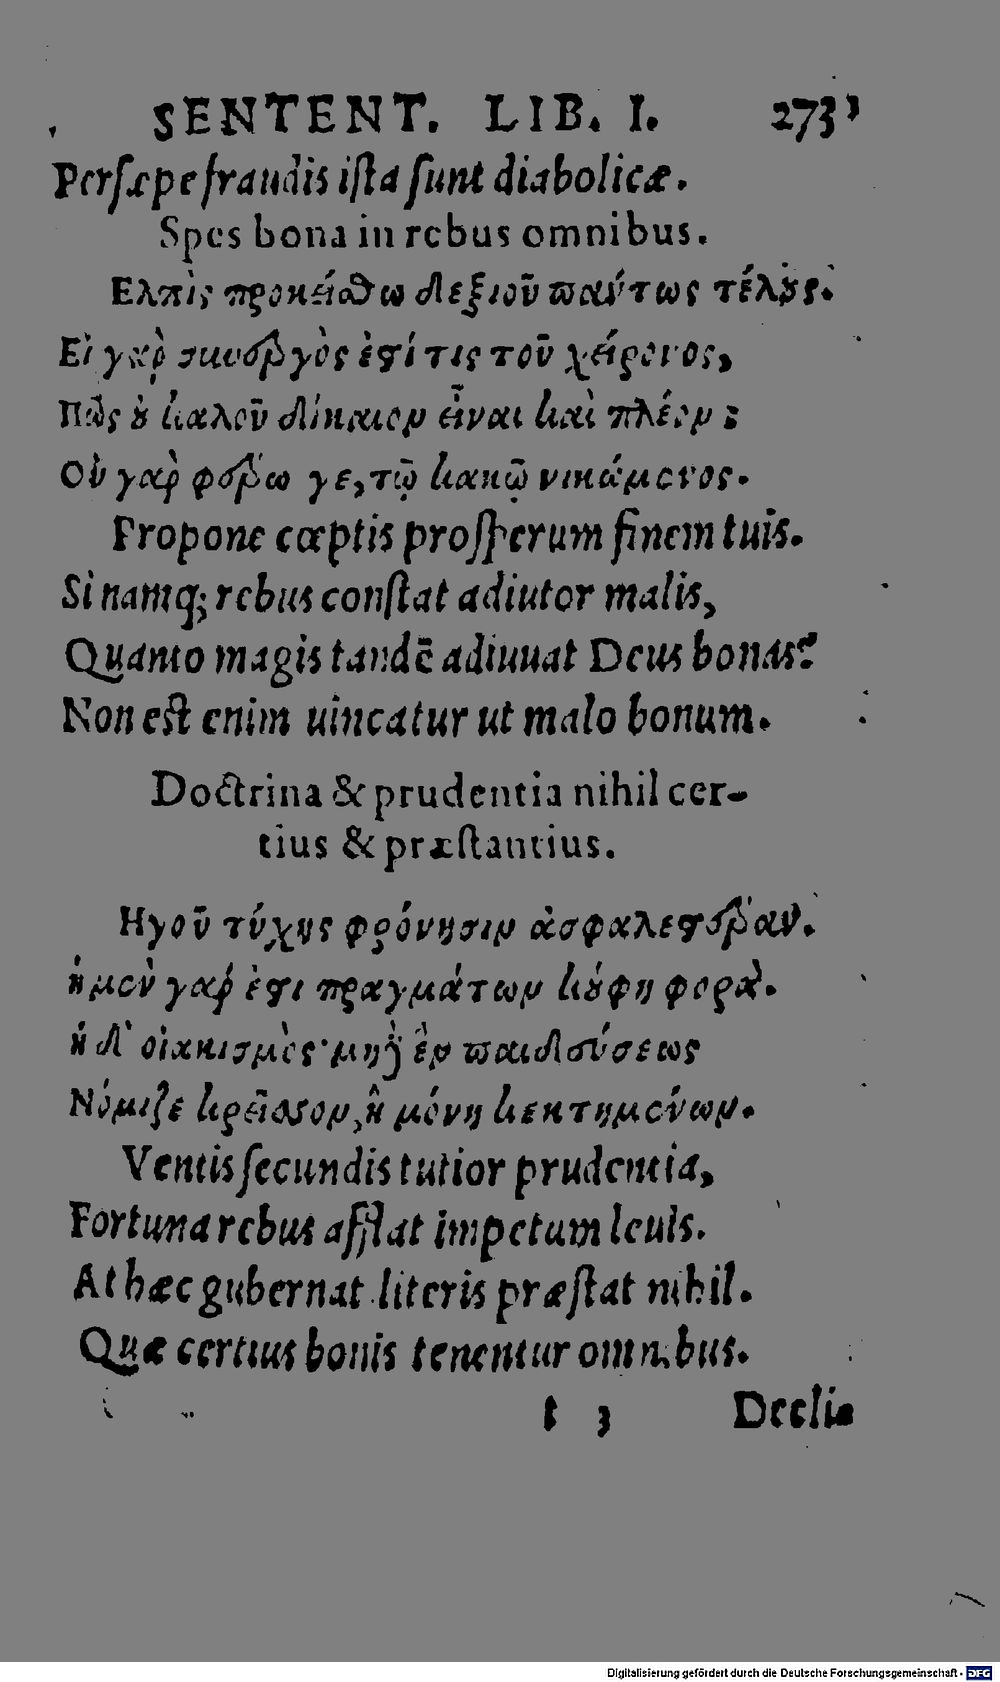 SENTENT. LIB. I. 273
Persæpe fraudis ista sunt diabolicæ.
Spes bona in rebus omnibus.
Ελπὶς προκείσθω δεξιοῦ παντως τέλους.
Εἰ γὰρ συνεργὸς ἐστί τις τοῦ χείρονος,
Πῶς οὐ καλοῦ δίκαιον εἶναι καὶ πλέον;
Οὐ γὰρ φέρω γε, τῷ κακῷ νικώμενος.
Propone cœptis prosperum finem tuis.
Si namq; rebus constat adiutor malis,
Quanto magis tandē adiuuat Deus bonas?
Non est enim uincatur ut malo bonum.
Doctrina & prudentia nihil cer-
tius & præstantius.
Ηγοῦ τύχης φρόνησιν ἀσφαλεστέραν.
ἡ μὲν γάρ ἐστι πραγμάτων κούφη φορὰ.
ἡ δ' οἰακισμὸς· μηδ' ἓν παιδεύσεως
Νόμιζε κρεῖσσον, ἣ μόνη κεκτημένων.
Ventis secundis tutior prudentia,
Fortuna rebus afflat impetum leuis.
At hæc gubernat literis præstat nihil.
Quæ certius bonis tenentur omnibus.
t 3 Decli=
Digitalisierung gefördert durch die Deutsche Forschungsgemeinschaft - DFG